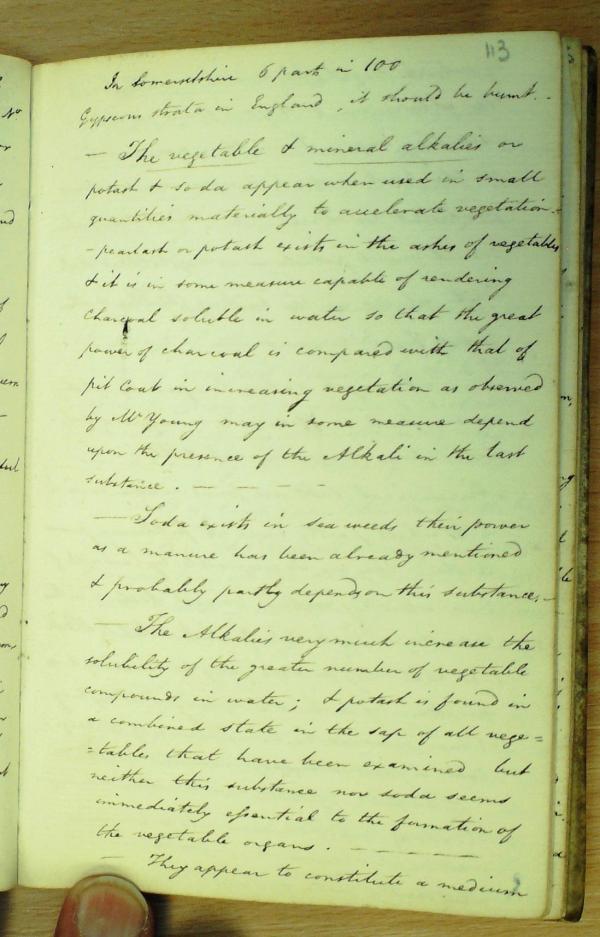 113
In Somersetshire 6 parts in 100
Gypseous strata in England, it should be burnt. -
— The vegetable & mineral alkalies or
potash & soda appear when used in small
quantities materially to accelerate vegetation. -
- pearlash or potash exists in the ashes of vegetables
& it is in some measure capable of rendering
charcoal soluble in water so that the great
power of charcoal is compared with that of
pit Coal in increasing vegetation as observed
by Mr Young may in some measure depend
upon the presence of the Alkali in the last
substance. — — — -
— Soda exists in sea weeds their power
as a manure has been already mentioned
& probably partly depends on this substance. —
— The Alkalies very much increase the
solubility of the greater number of vegetable
compounds in water; & potash is found in
a combined state in the sap of all vege=
=tables that have been examined but
neither this substance nor soda seems
immediately essential to the formation of
the vegetable organs. — ———
— They appear to constitute a medium